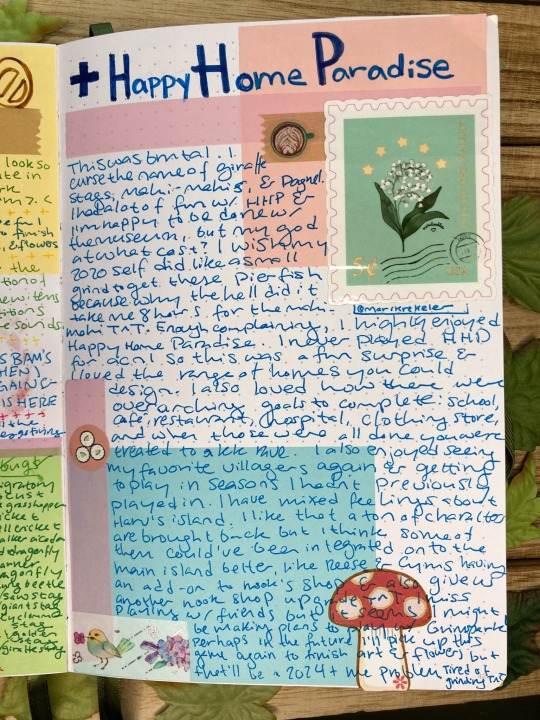 + Happy Home Paradise
This was brutal. I
curse the name of giraffe
stags, mahi-mahi's, & Dagnel.
I had a lot of fun w/ HHP &
I'm happy to be done w/
the museum, but my god
at what cost? I wish my
2020 self did like a small
grind to get these Pier fish
because why the hell did it
take me 8 hours for the mahi-
mahi T^T. Enough complaining, I highly enjoyed
Happy Home Paradise. I never played HHD
for acnl so this was a fun surprise &
I loved the range of homes you could
design. I also loved how there were
overarching goals to complete: school,
cafe, restaurant, hospital, clothing store,
and when those were all done you were
treated to a kk rave. I also enjoyed seeing
my favorite villagers again & getting
to play in seasons I hadn't previously
played in. I have mixed feelings about
Harv's island. I like that a ton of characters
are brought back but I think some of
them could've been integrated onto the
main island better, like Reese & Cyrus having
an add-on to nook's shop
also give us
another nook shop upgrade. T^T
miss
w/ friends but it seems I might
be making plans to
Perhaps in the future I'll pick up this
game again to finish art & flowers but
that'll be a 2024+ me problem
Tired of
grinding T^T
5¢
USA
@marikrekeler
look so
ate in
& flowers
the
sounds.
BAM'S
HEN)
AGAIN
IS HERE
bugs
migratory
locust
grasshopper
dragonfly
saw stag
giant stag
golden
stag
giraffe stag